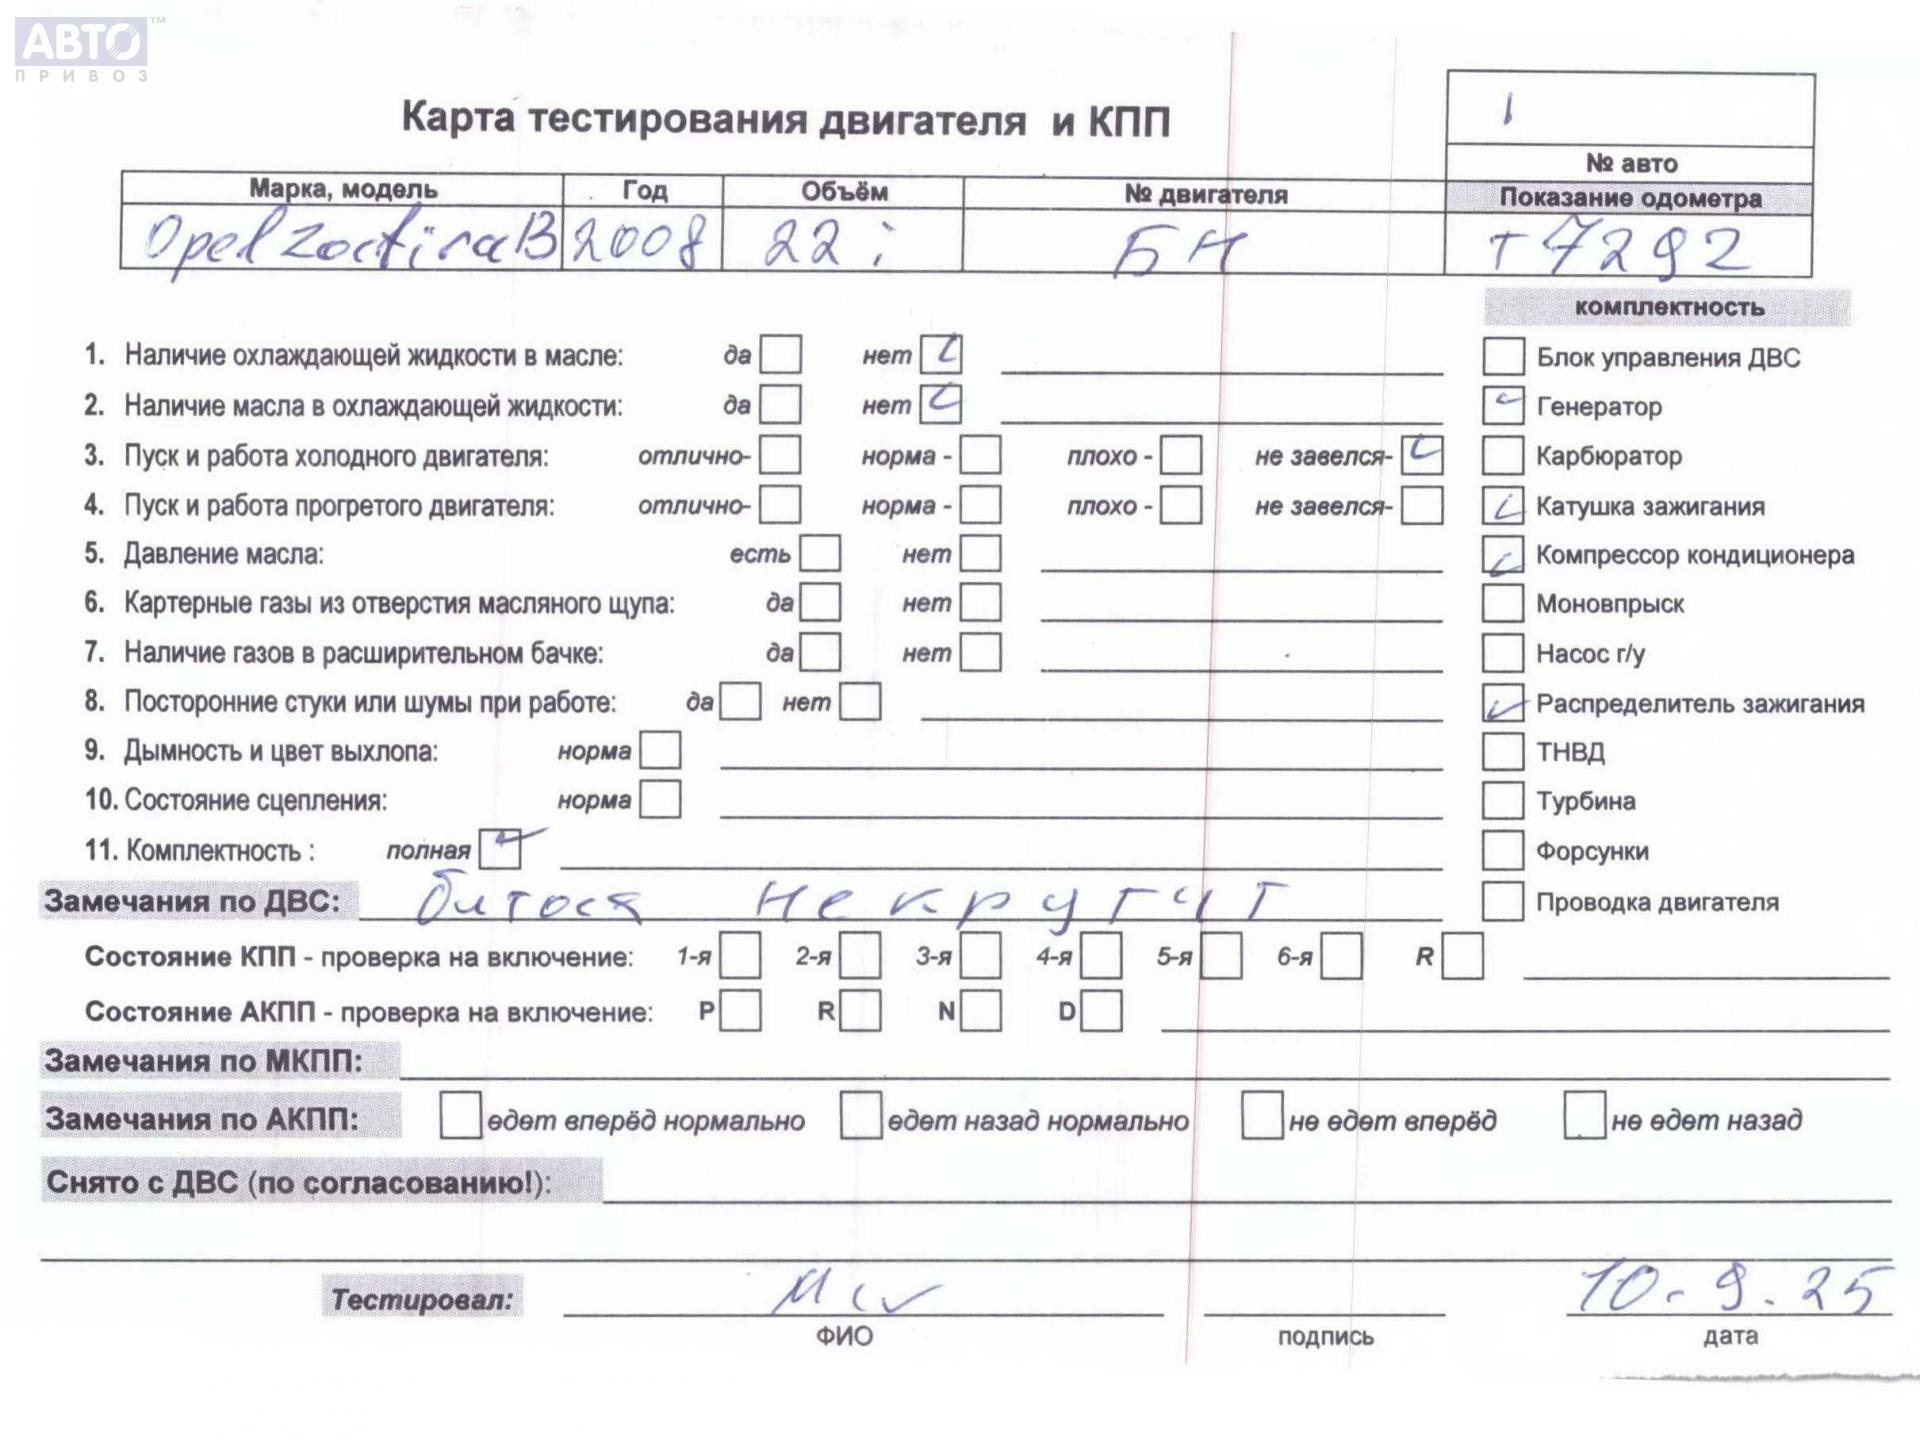 АВТО™
ПРИВОЗ
Карта тестирования двигателя и КПП
1
№ авто
Марка, модель Год Объём № двигателя Показание одометра
Opel Zactira B 2008 22 i БН T7292
комплектность
1. Наличие охлаждающей жидкости в масле: да нет Блок управления ДВС
2. Наличие масла в охлаждающей жидкости: да нет Генератор
3. Пуск и работа холодного двигателя: отлично- норма - плохо - не завелся- Карбюратор
4. Пуск и работа прогретого двигателя: отлично- норма - плохо - не завелся- Катушка зажигания
5. Давление масла: есть нет Компрессор кондиционера
6. Картерные газы из отверстия масляного щупа: да нет Моновпрыск
7. Наличие газов в расширительном бачке: да нет Насос г/у
8. Посторонние стуки или шумы при работе: да нет Распределитель зажигания
9. Дымность и цвет выхлопа: норма ТНВД
10. Состояние сцепления: норма Турбина
11. Комплектность : полная Форсунки
Замечания по ДВС: битося не крутит Проводка двигателя
Состояние КПП - проверка на включение: 1-я 2-я 3-я 4-я 5-я 6-я R
Состояние АКПП - проверка на включение: P R N D
Замечания по МКПП:
Замечания по АКПП: едет вперёд нормально едет назад нормально не едет вперёд не едет назад
Снято с ДВС (по согласованию!):
Тестировал: 10.9.25
ФИО подпись дата